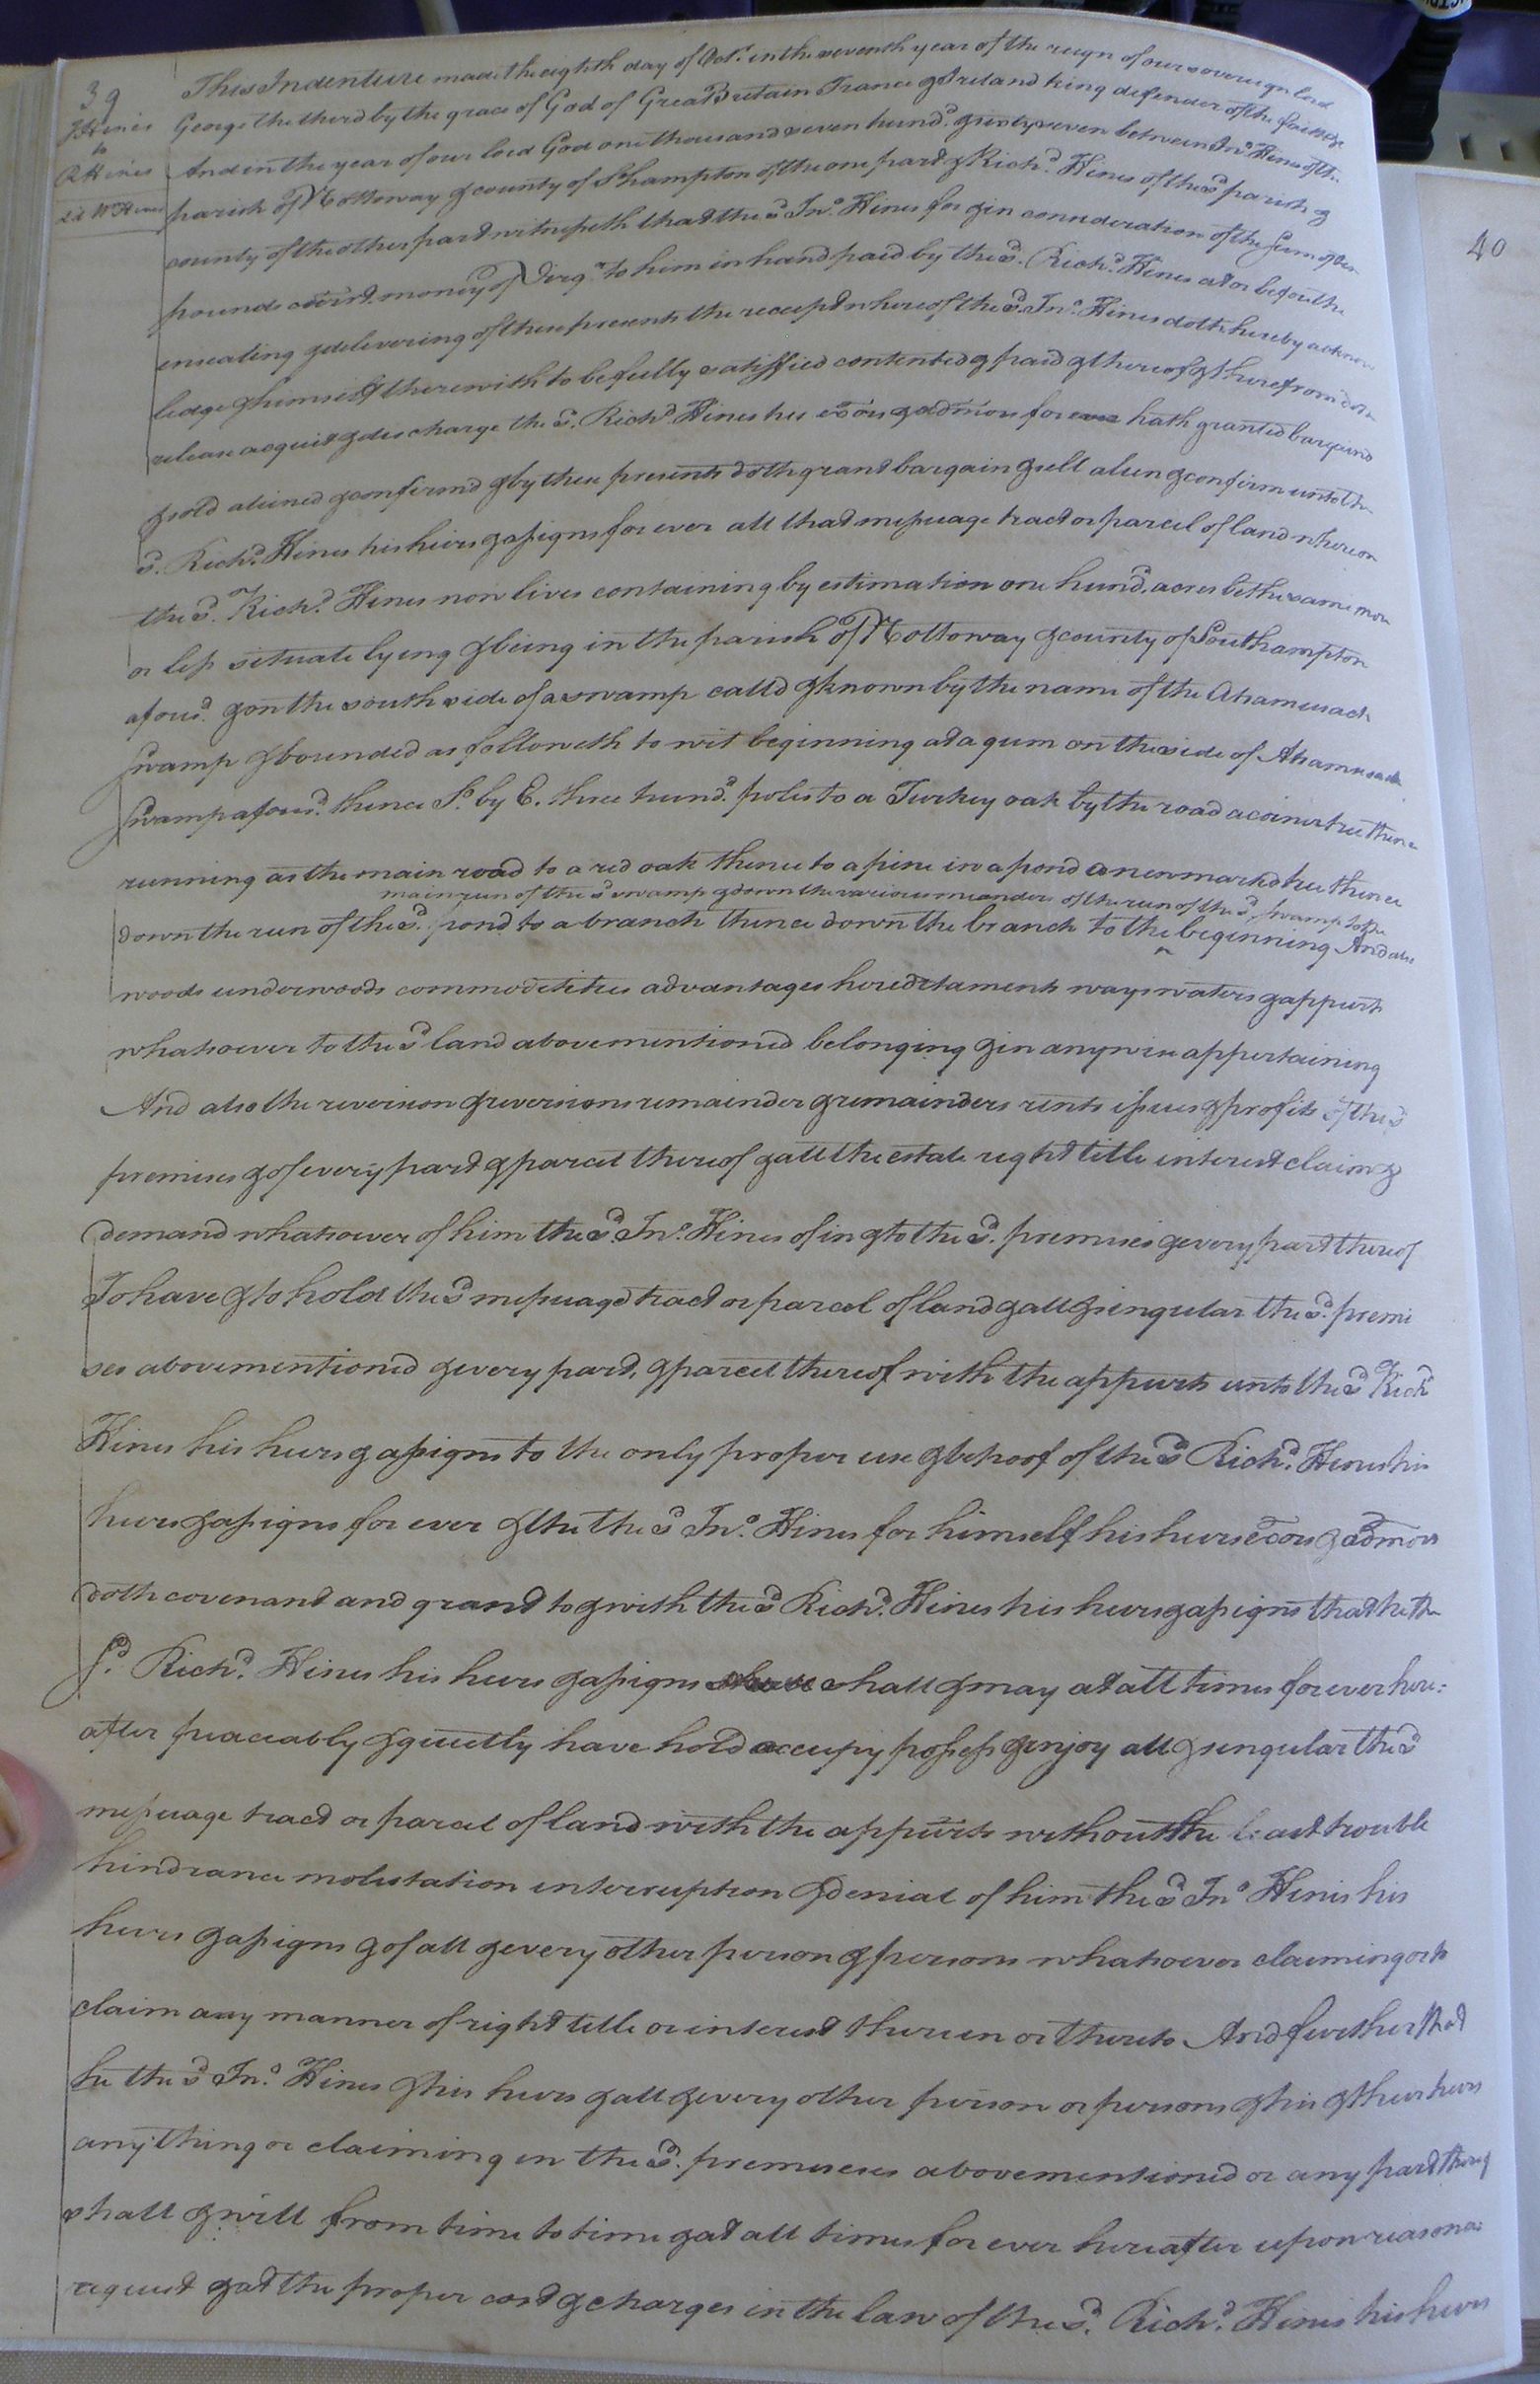 39
J Hines
to
R Hines
This Indenture made the eighth day of Octr. in the seventh year of the reign of our sovereign lord
George the third by the grace of God of Great Britain France & Ireland king defender of the faith &c
And in the year of our lord God one thousand seven hundd. & sixty seven between Jno. Hines of the
parish of Nottoway & county of So.hampton of the one part & Richd. Hines of the sd. parish &
county of the other part witnesseth that the sd. Jno. Hines for & in consideration of the sum of ten
pounds current money of Virga. to him in hand paid by the sd. Richd. Hines at or before the
ensealing & delivering of these presents the receipt whereof the sd. Jno. Hines doth hereby acknow
ledge & himself therewith to be fully satisfied contented & paid & thereof & therefrom doth
release acquit & discharge the sd. Richd. Hines his exors & admors for ever hath granted bargaind
& sold aliened & confirmd & by these presents doth grant bargain & sell alien & confirm unto the
sd. Richd. Hines his heirs & assigns for ever all that messuage tract or parcel of land whereon
the sd. Richd. Hines now lives containing by estimation one hundd. acres be the same more
or less situate lying & being in the parish of Nottoway & county of Southampton
aforesd. & on the south side of a swamp calld & known by the name of the Ahamusack
Swamp & bounded as followeth to wit beginning at a gum on the side of Ahamusack
Swamp aforesd. thence So. by E. three hundd. poles to a Turkey oak by the road a corner tree thence
running as the main road to a red oak thence to a pine in a pond a new markd tree thence
main run of the sd swamp & down the various meander of the run of the sd. swamp to the
down the run of the sd. pond to a branch thence down the branch to the ^ beginning And also
woods underwoods commodetities advantages heredetaments ways waters & appurts
whatsoever to the sd land abovementioned belonging & in any wise appertaining
And also the reversion & reversions remainder & remainders rents issues & profits of the sd
premises & of every part & parcel thereof & all the estate right title interest claim &
demand whatsoever of him the sd. Jno. Hines of in & to the sd. premises & every part thereof
To have & to hold the sd messuage tract or parcel of land & all & singular the sd. premi
ses abovementioned & every part, & parcel thereof with the appurts unto the sd Richd
Hines his heirs & assigns to the only proper use & behoof of the sd Richd. Hines his
heirs & assigns for ever & the the sd Jno. Hines for himself his heirs exors & admors
doth covenant and grant to & with the sd Richd. Hines his heirs & assigns that he the
Sd. Richd. Hines his heirs & assigns shall & may at all times for ever here=
after peaceably & quietly have hold occupy possess & enjoy all & singular the sd
messuage tract or parcel of land with the appurts without the least trouble
hindrance molestation interruption & denial of him the sd Jno. Hines his
heirs & assigns & of all & every other person & persons whatsoever claiming or to
claim any manner of right title or interest therein or thereto And further that
he the sd Jno. Hines & his heirs & all & every other person or persons & his & their heirs
anything or claiming in the sd. premises abovementiond or any part thereof
shall & will from time to time & at all times for ever hereafter upon reasona=
request & at the proper cost & charges in the law of the sd. Richd. Hines his heirs
40